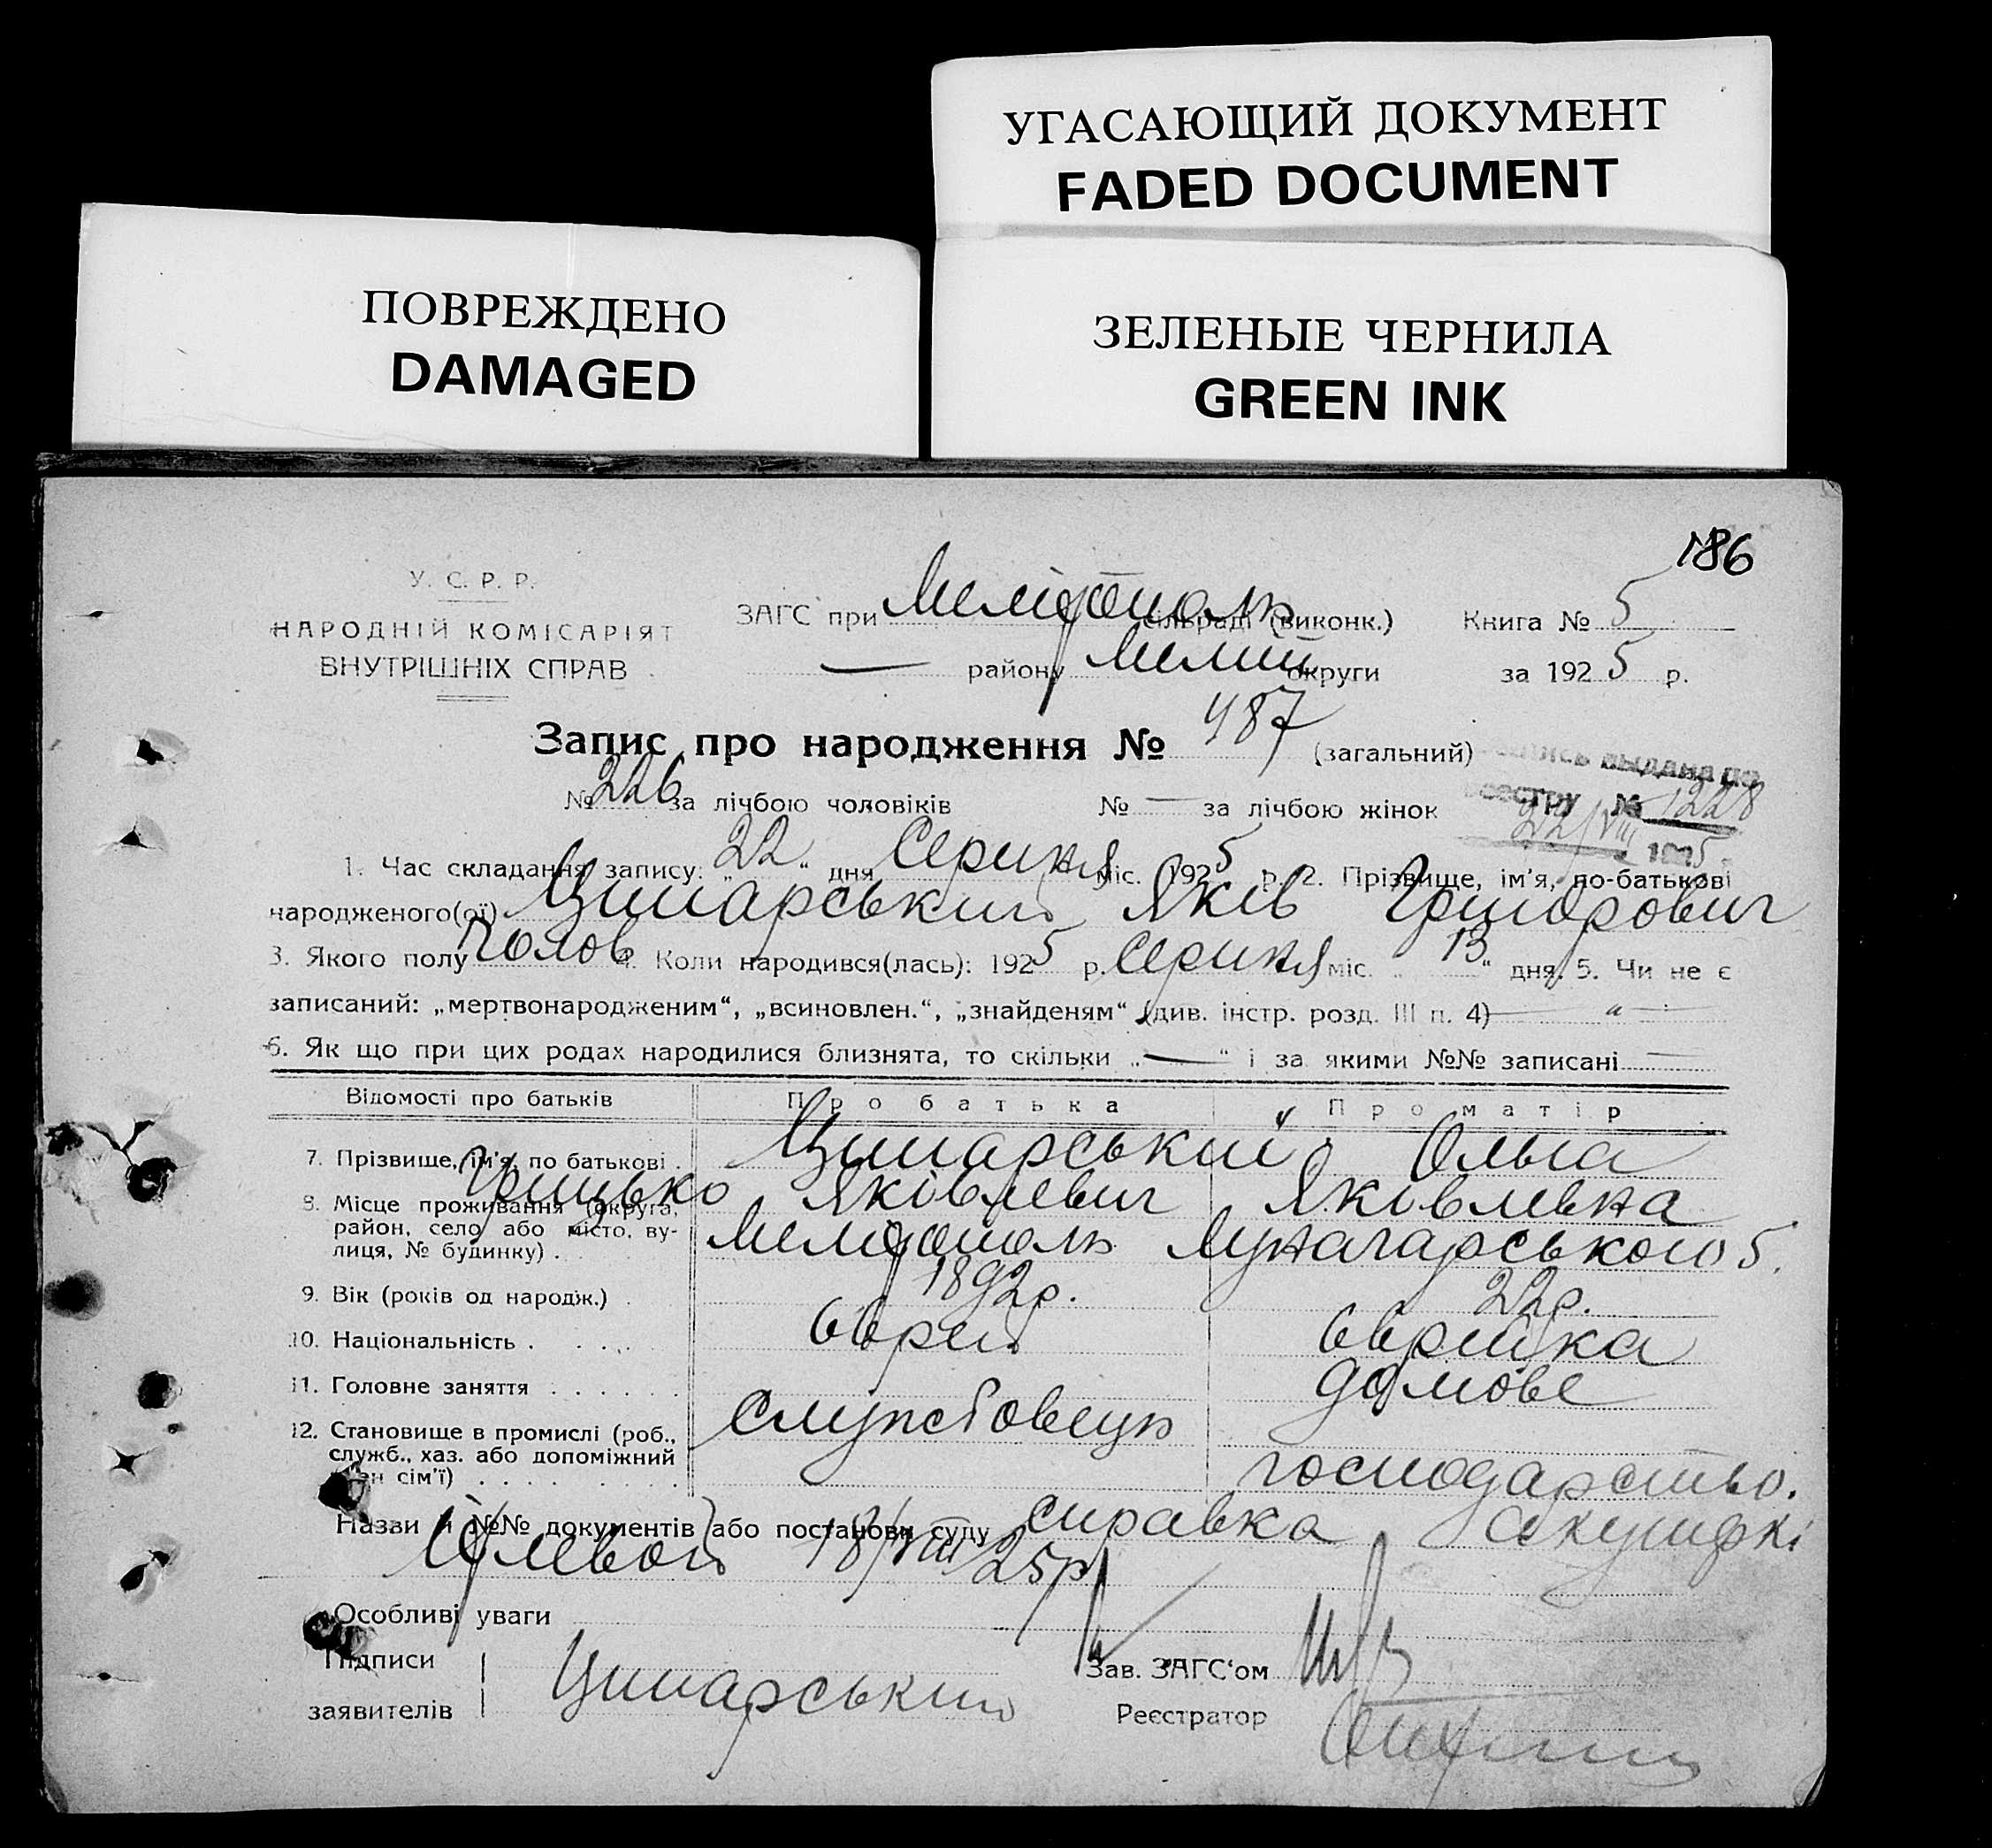 УГАСАЮЩИЙ ДОКУМЕНТ
FADED DOCUMENT
ПОВРЕЖДЕНО
DAMAGED
ЗЕЛЕНЫЕ ЧЕРНИЛА
GREEN INK
186
У. С. Р. Р.
НАРОДНІЙ КОМІСАРІЯТ
ВНУТРІШНІХ СПРАВ
ЗАГС при Мелітополь сільраді (виконк.)
— району Меліт округи
Книга № 5
за 1925 р.
Запис про народження № 487 (загальний)
№ 226 за лічбою чоловіків № — за лічбою жінок
выдана по
реестру № 1228
22/VIII 1925
1. Час складання запису: „22“ дня Серпня міс. 1925 р. 2. Прізвище, ім'я, по-батькові
народженого(ої) Яків Григорович
3. Якого полу Чолов 4. Коли народився(лась): 1925 р. Серпня міс. „13“ дня. 5. Чи не є
записаний: „мертвонародженим“, „всиновлен.“, „знайденям“ (див. інстр. розд. III п. 4) — „ —
6. Як що при цих родах народилися близнята, то скільки „—“ і за якими №№ записані —
Відомості про батьків Про батька Про матір
7. Прізвище, ім'я, по батькові . Ольга
Грицько Яківлевич Яківлевна
8. Місце проживання (округа,
район, село або місто, ву-
лиця, № будинку) . Мелітополь Луначарського 5.
9. Вік (років од народж.) . 1892р. 22р.
10. Національність . . . . Єврей Єврейка
11. Головне заняття . . . . . . домове
12. Становище в промислі (роб.,
служб., хаз. або допоміжний
член сім'ї) . . . . . . . . Службовець господарство.
Назви й №№ документів або постанови суду справка Акушерки
18/VIII 25р
Особливі уваги
Підписи
заявителів
Зав. ЗАГС'ом
Реєстратор